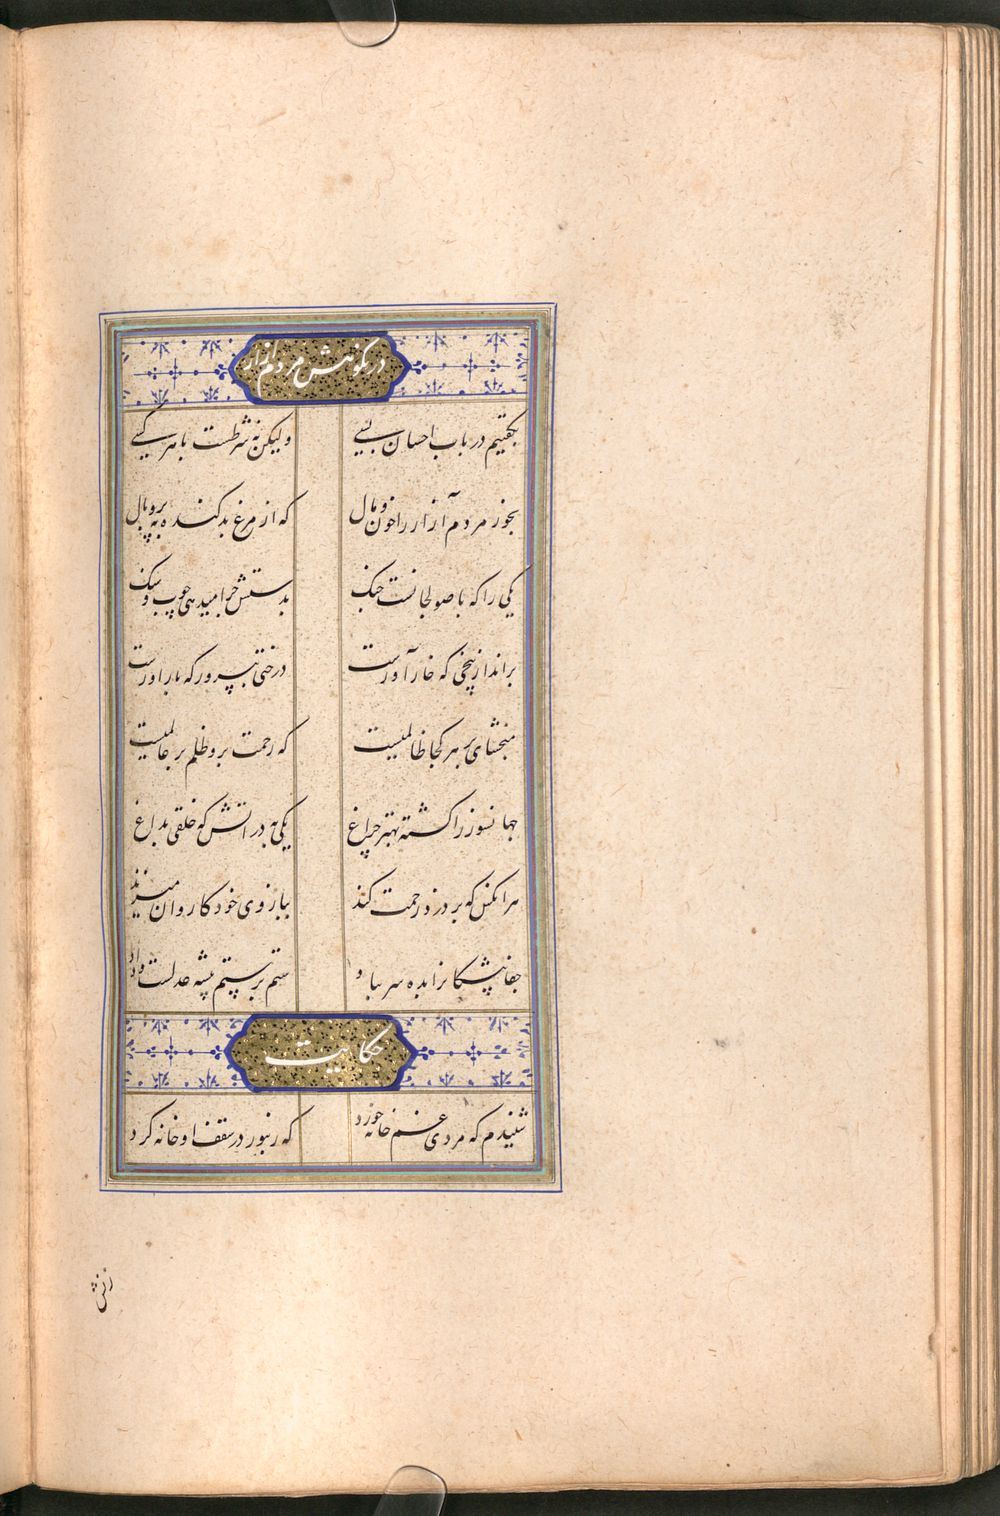 در نکوهش مردم آزار
بگفتیم در باب احسان بسی ولیکن نه شرطست با هر کسی
بخور مردم آزار را خون و مال که از مرغ بد کنده به پر و بال
یکی را که با خواجه تست جنگ بدستش چرا میدهی چوب و سنگ
برانداز بیخی که خار آورست درختی بپرور که بار آورست
مبخشای بر هر کجا ظالمیست که رحمت برو ظلم بر عالمیست
جهانسوز را کشته بهتر چراغ یکی به در آتش که خلقی بداغ
هر آنکس که بر دزد رحمت کند ببازوی خود کاروان میزند
جفاپیشکانرا بده سر بباد ستم بر ستم پیشه عدلست و داد
حکایت
شنیدم که مردی غم خانه خورد که زنبور در سقف او خانه کرد
زنش